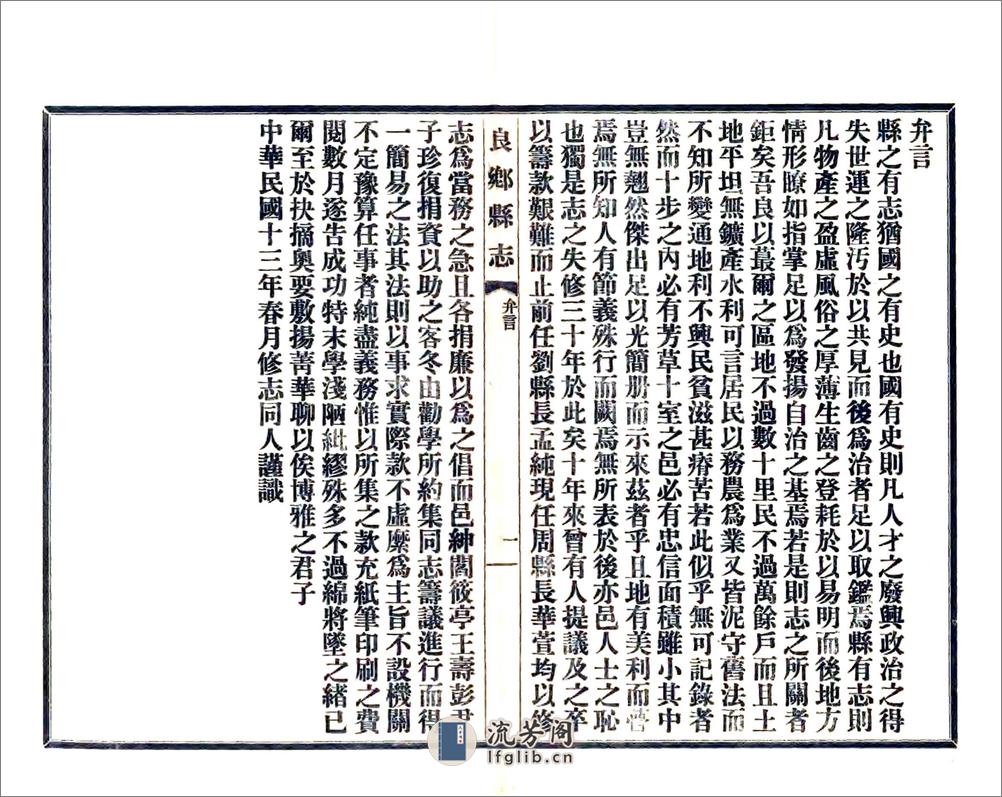 弁言
縣之有志猶國之有史也國有史則凡人才之廢興政治之得
失世運之隆汚於以共見而後為治者足以取鑑焉縣有志則
凡物產之盈虛風俗之厚薄生齒之登耗於以易明而後地方
情形瞭如指掌足以為發揚自治之基焉若是則志之所關者
鉅矣吾良以蕞爾之區地不過數十里民不過萬餘戶而且土
地平坦無鑛產水利可言居民以務農為業又皆泥守舊法而
不知所變通地利不興民貧滋甚瘠苦若此似乎無可記錄者
然而十步之內必有芳草十室之邑必有忠信面積雖小其中
豈無翹然傑出足以光簡册而示來茲者乎且地有美利而嘗
焉無所知人有節義殊行而闕焉無所表於後亦邑人士之恥
也獨是志之失修三十年於此矣十年來曾有人提議及之卒
以籌款艱難而止前任劉縣長孟純現任周縣長華萱均以修
良鄉縣志
弁言
一
志為當務之急且各捐廉以為之倡而邑紳閻筱亭王壽彭君
子珍復捐資以助之客冬由勸學所約集同志籌議進行而得
一簡易之法其法則以事求實際款不虛縻為主旨不設機關
不定豫算任事者純盡義務惟以所集之款充紙筆印刷之費
閱數月遂告成功特末學淺陋紕繆殊多不過綿將墜之緒已
爾至於抉摘奧要敷揚菁華聊以俟博雅之君子
中華民國十三年春月修志同人謹識
流芳閣
lfglib.cn